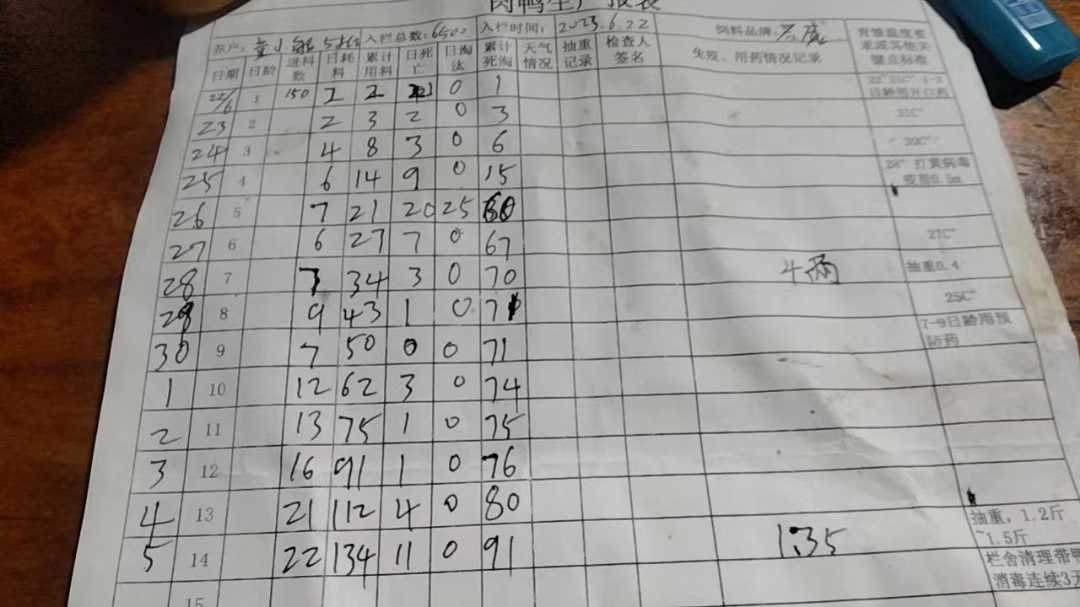 肉鸭生产报表
养户: 入栏总数: 6500 入栏时间: 2023.6.22 饲料品牌:
日期 日龄 进料数 日耗料 累计用料 日死亡 日淘汰 累计死淘 天气情况 抽重记录 检查人签名 免疫、用药情况记录 育雏温度要求跟其他关键点标准
22/6 1 150 2 2 1 0 1
23 2 2 3 2 0 3 31C°
24 3 4 8 3 0 6 30C°
25 4 6 14 9 0 15 28° 打黄病毒疫苗0.5m
26 5 7 21 20 25 60
27 6 6 27 7 0 67 27C°
28 7 7 34 3 0 70 4两 抽重0.4
29 8 9 43 1 0 71 25C°
30 9 7 50 0 0 71 7-9日龄用预防药
1 10 12 62 3 0 74
2 11 13 75 1 0 75
3 12 16 91 1 0 76
4 13 21 112 4 0 80 抽重,1.2斤~1.5斤
5 14 22 134 11 0 91 1:35 栏舍清理带鸭消毒连续3天
15